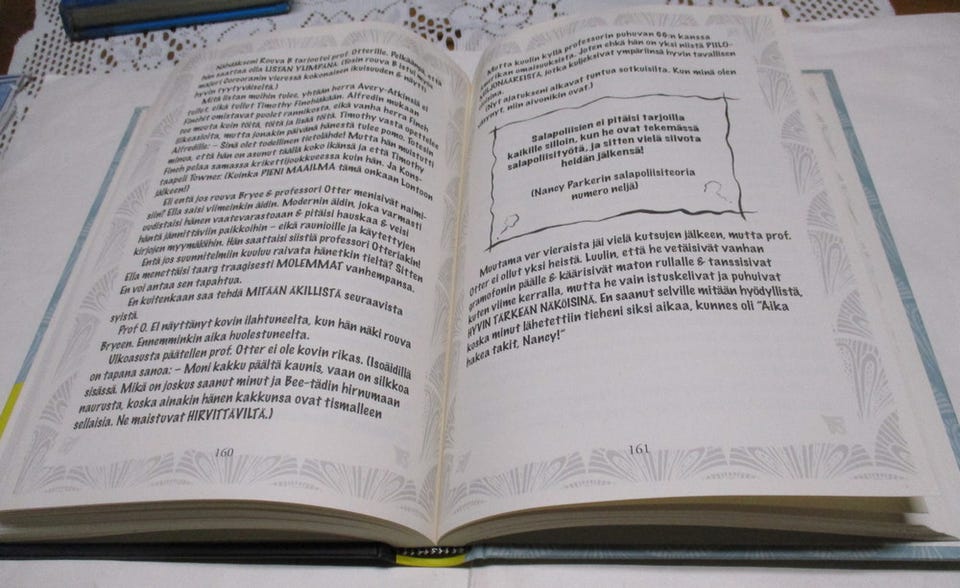 Nähdäkseni Rouva B tarjoutui prof. Otterille. Pelkäänpä, että
hän saattaa olla LISTAN YLIMPÄNÄ. (Tosin rouva B istui myös
majuri Gooranin vieressä kokonaisen ikuisuuden & näytti
hyvin tyytyväiseltä.)
Mitä listan muihin tulee, yhtään herra Avery-Arkinsiä ei
tullut, eikä tullut Timothy Finchiäkään. Alfredin mukaan
Finchit omistavat puolet rannikosta, eikä vanha herra Finch
tee muuta kuin töitä, töitä ja lisää töitä. Timothy vasta opettelee
liikeasioita, mutta jonakin päivänä hänestä tulee pomo. Totesin
Alfredille: – Sinä olet todellinen tietolähde! Mutta hän muistutti
minua, että hän on asunut täällä koko ikänsä ja että Timothy
Finch pelaa samassa krikettijoukkueessa kuin hän. Ja Kons-
taapeli Towner. (Kuinka PIENI MAAILMA tämä onkaan Lontoon
jälkeen!)
Eli entä jos rouva Bryce & professori Otter menisivät naimi-
siin? Ella saisi viimeinkin äidin. Modernin äidin, joka varmasti
uudistaisi hänen vaatevarastoaan & pitäisi hauskaa & veisi
häntä jännittäviin paikkoihin – eikä raunioille ja käytettyjen
kirjojen myymälöihin. Hän saattaisi siistiä professori Otterinkin!
Entä jos suunnitelmiin kuuluu raivata hänetkin tieltä? Sitten
Ella menettäisi taarg traagisesti MOLEMMAT vanhempansa.
En voi antaa sen tapahtua.
En kuitenkaan saa tehdä MITÄÄN ÄKILLISTÄ seuraavista
syistä.
Prof O. EI näyttänyt kovin ilahtuneelta, kun hän näki rouva
Brycen. Ennemminkin aika huolestuneelta.
Ulkoasusta päätellen prof. Otter ei ole kovin rikas. (Isoäidillä
on tapana sanoa: – Moni kakku päältä kaunis, vaan on silkkoa
sisässä. Mikä on joskus saanut minut ja Bee-tädin hirnumaan
naurusta, koska ainakin hänen kakkunsa ovat tismalleen
sellaisia. Ne maistuvat HIRVITTÄVILTÄ.)
160
Mutta kuulin kyllä professorin puhuvan GG:n kanssa
Amerikan omaisuuksista. Joten ehkä hän on yksi niistä PIILO-
MILJONÄÄREISTÄ, jotka kuljeksivat ympäriinsä hyvin tavallisen
näköisinä.
(Nyt ajatukseni alkavat tuntua sotkuisilta. Kun minä olen
väsynyt, niin aivonikin ovat.)
Salapoliisien ei pitäisi tarjoilla
kaikille silloin, kun he ovat tekemässä
salapoliisityötä, ja sitten vielä siivota
heidän jälkensä!
(Nancy Parkerin salapoliisiteoria
numero neljä)
Muutama ver vieraista jäi vielä kutsujen jälkeen, mutta prof.
Otter ei ollut yksi heistä. Luulin, että he vetäisivät vanhan
gramofonin päälle & käärisivät maton rullalle & tanssisivat
kuten viime kerralla, mutta he vain istuskelivat ja puhuivat
HYVIN TÄRKEÄN NÄKÖISINÄ. En saanut selville mitään hyödyllistä,
koska minut lähetettiin tieheni siksi aikaa, kunnes oli "Aika
hakea takit, Nancy!"
161